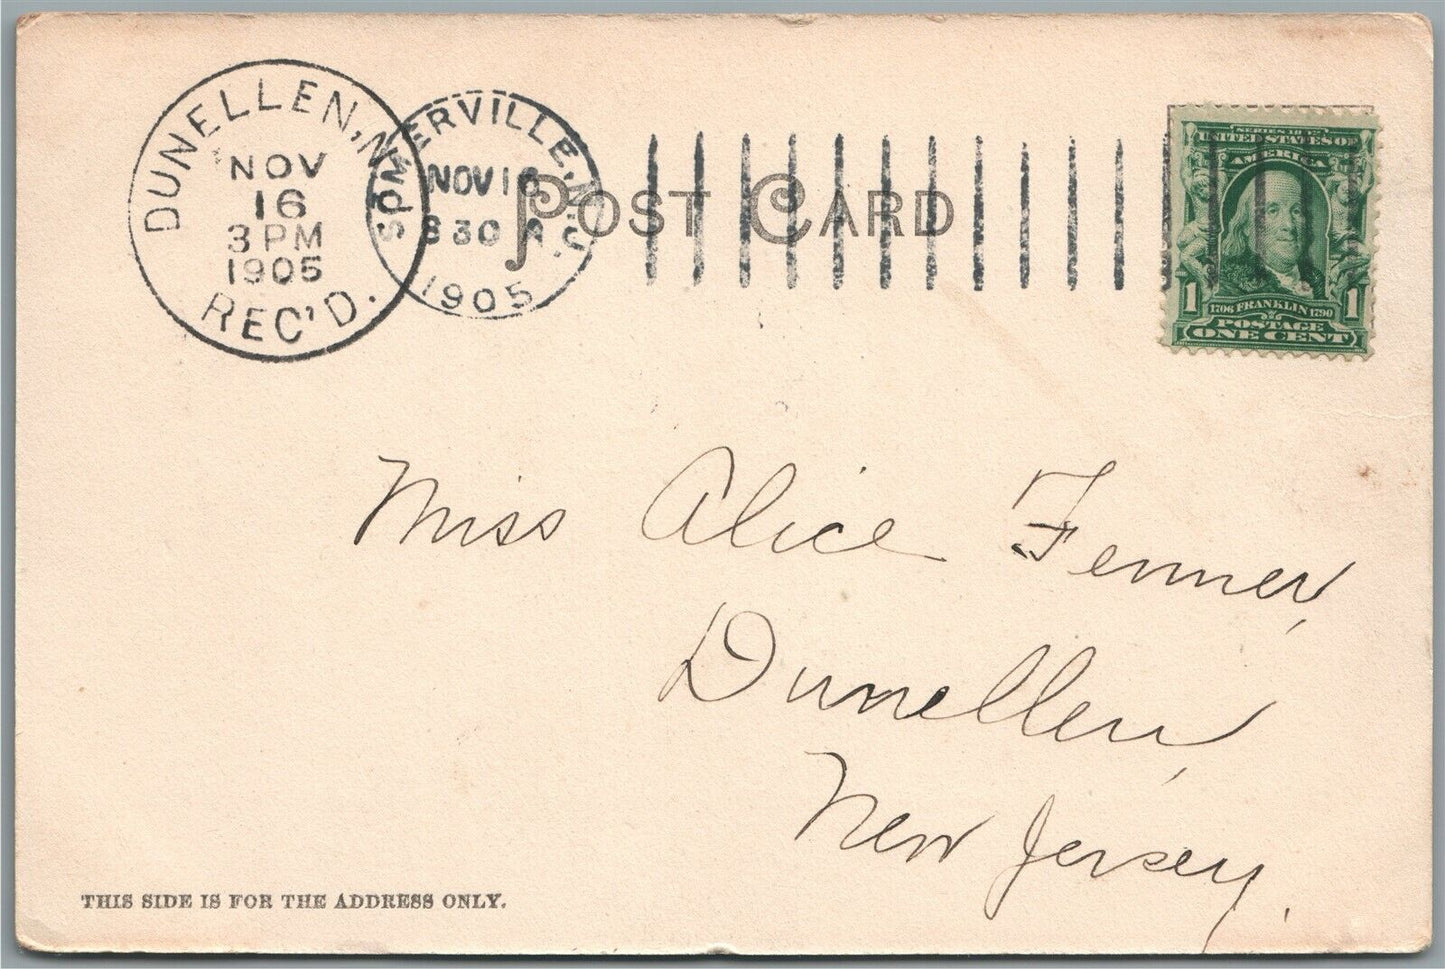 DUNELLEN, N
NOV
16
3 PM
1905
REC'D.
SOMERVILLE, N.J.
NOV 16
8 30 A
1905
POST CARD
SERIES 1902
UNITED STATES OF
AMERICA
1 1706 FRANKLIN 1790 1
POSTAGE
ONE CENT
Miss Alice Fenner,
Dunellen,
New Jersey.
THIS SIDE IS FOR THE ADDRESS ONLY.